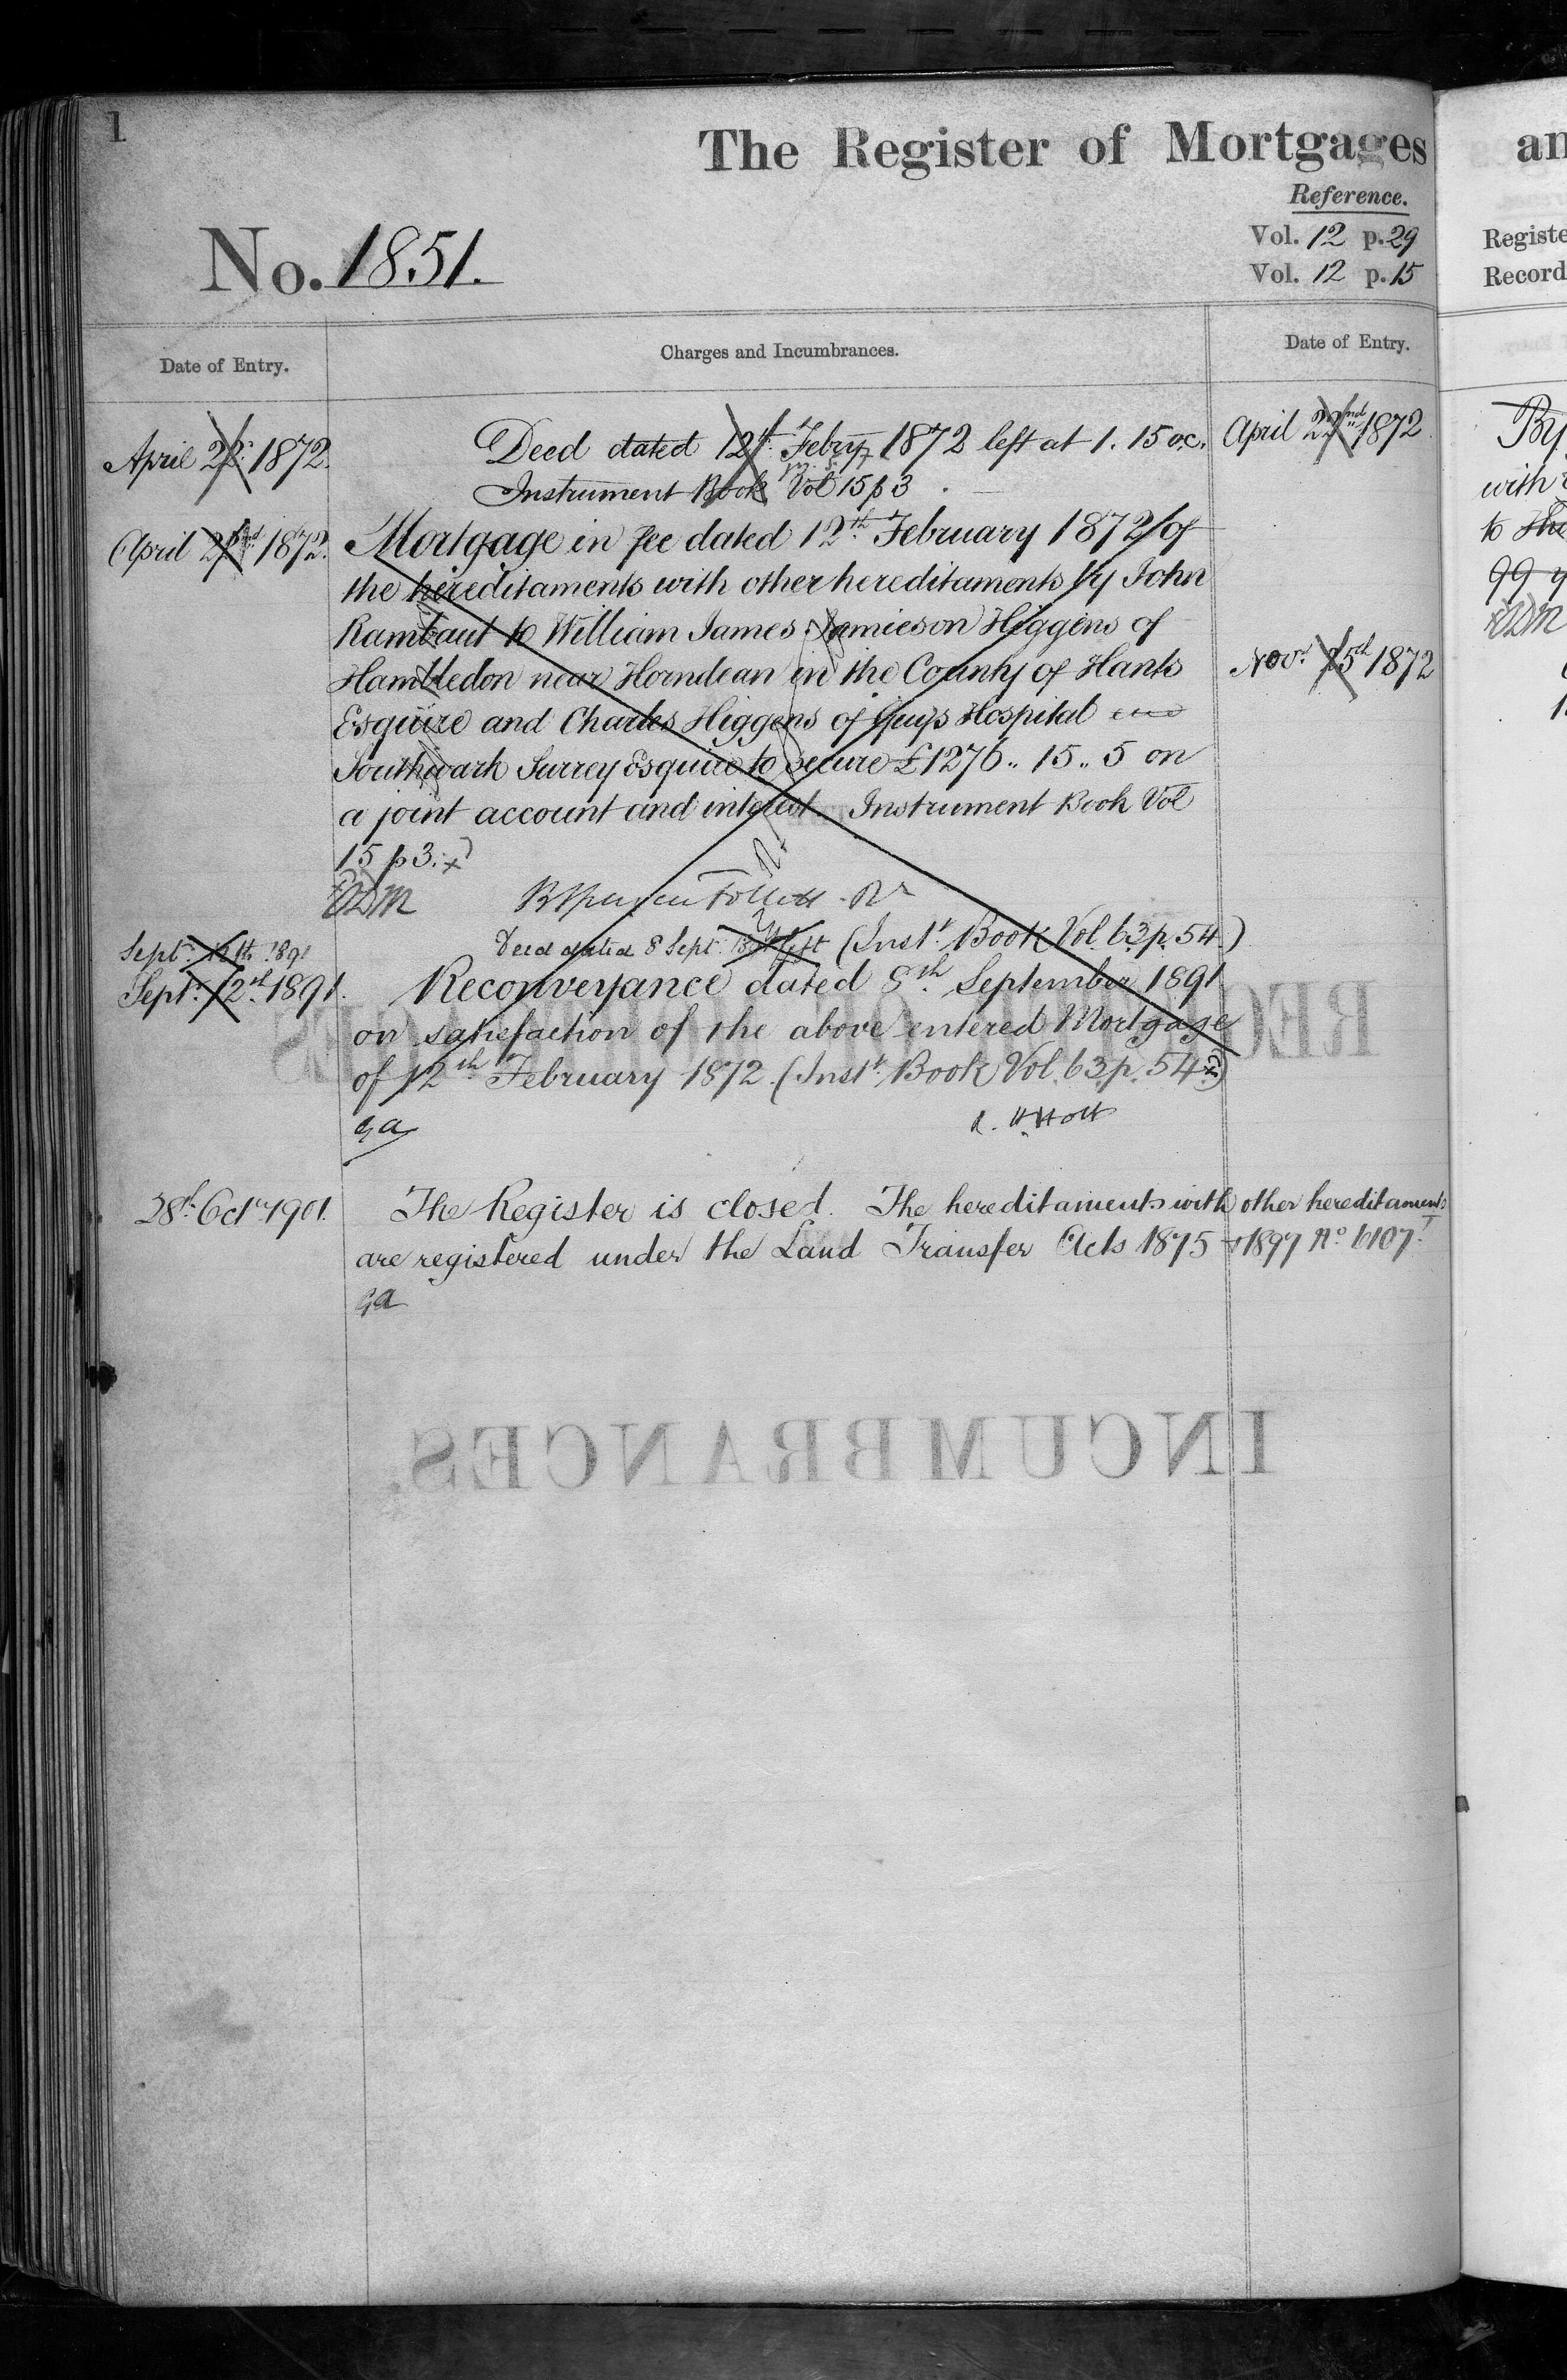 1
The Register of Mortgages
Reference.
Vol. 12 p. 29
Vol. 12 p. 15
No. 1851.
Date of Entry.
Charges and Incumbrances.
Date of Entry.
April 22nd 1872.
Deed dated 12th Febry 1872 left at 1.15 oc.
Instrument Book Vol 15 p 3
April 22nd 1872.
Mortgage in fee dated 12th February 1872 of
the hereditaments with other hereditaments by John
Rambaut to William James Jamieson Higgens of
Hambledon near Horndean in the County of Hants
Esquire and Charles Higgens of Guys Hospital
Southwark Surrey Esquire to secure £1276.. 15.. 5 on
a joint account and interest. Instrument Book Vol
15 p 3.
Sept. 12th 1891
Deed dated 8 Sept. 1891 left (Inst. Book Vol. 63 p. 54.)
Sept. 12th 1891.
Reconveyance dated 8th September 1891
on satisfaction of the above entered Mortgage
of 12th February 1872 (Inst. Book Vol. 63 p. 54)
GA
28th Octr 1901.
The Register is closed. The hereditaments with other hereditaments
are registered under the Land Transfer Acts 1875 & 1897 No 6107.
GA
April 22nd 1872
Novr 15th 1872
an
Registe
Record
By
with
to the
99 y
REGISTER OF MORTGAGES
INCUMBRANCES.